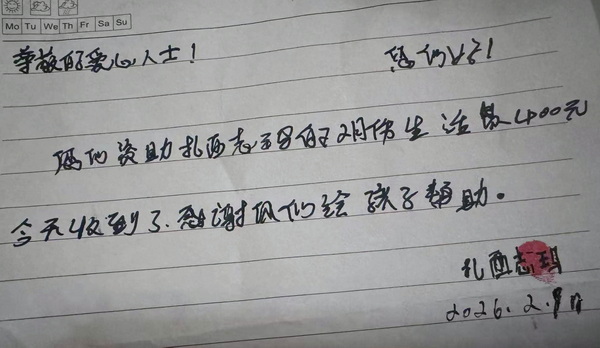 Mo Tu We Th Fr Sa Su
尊敬的爱心人士! 您们好!
您们资助扎西志玛的2月份生活费400元
今天收到了.感谢你们给孩子辅助。
扎西志玛
2026.2.9日